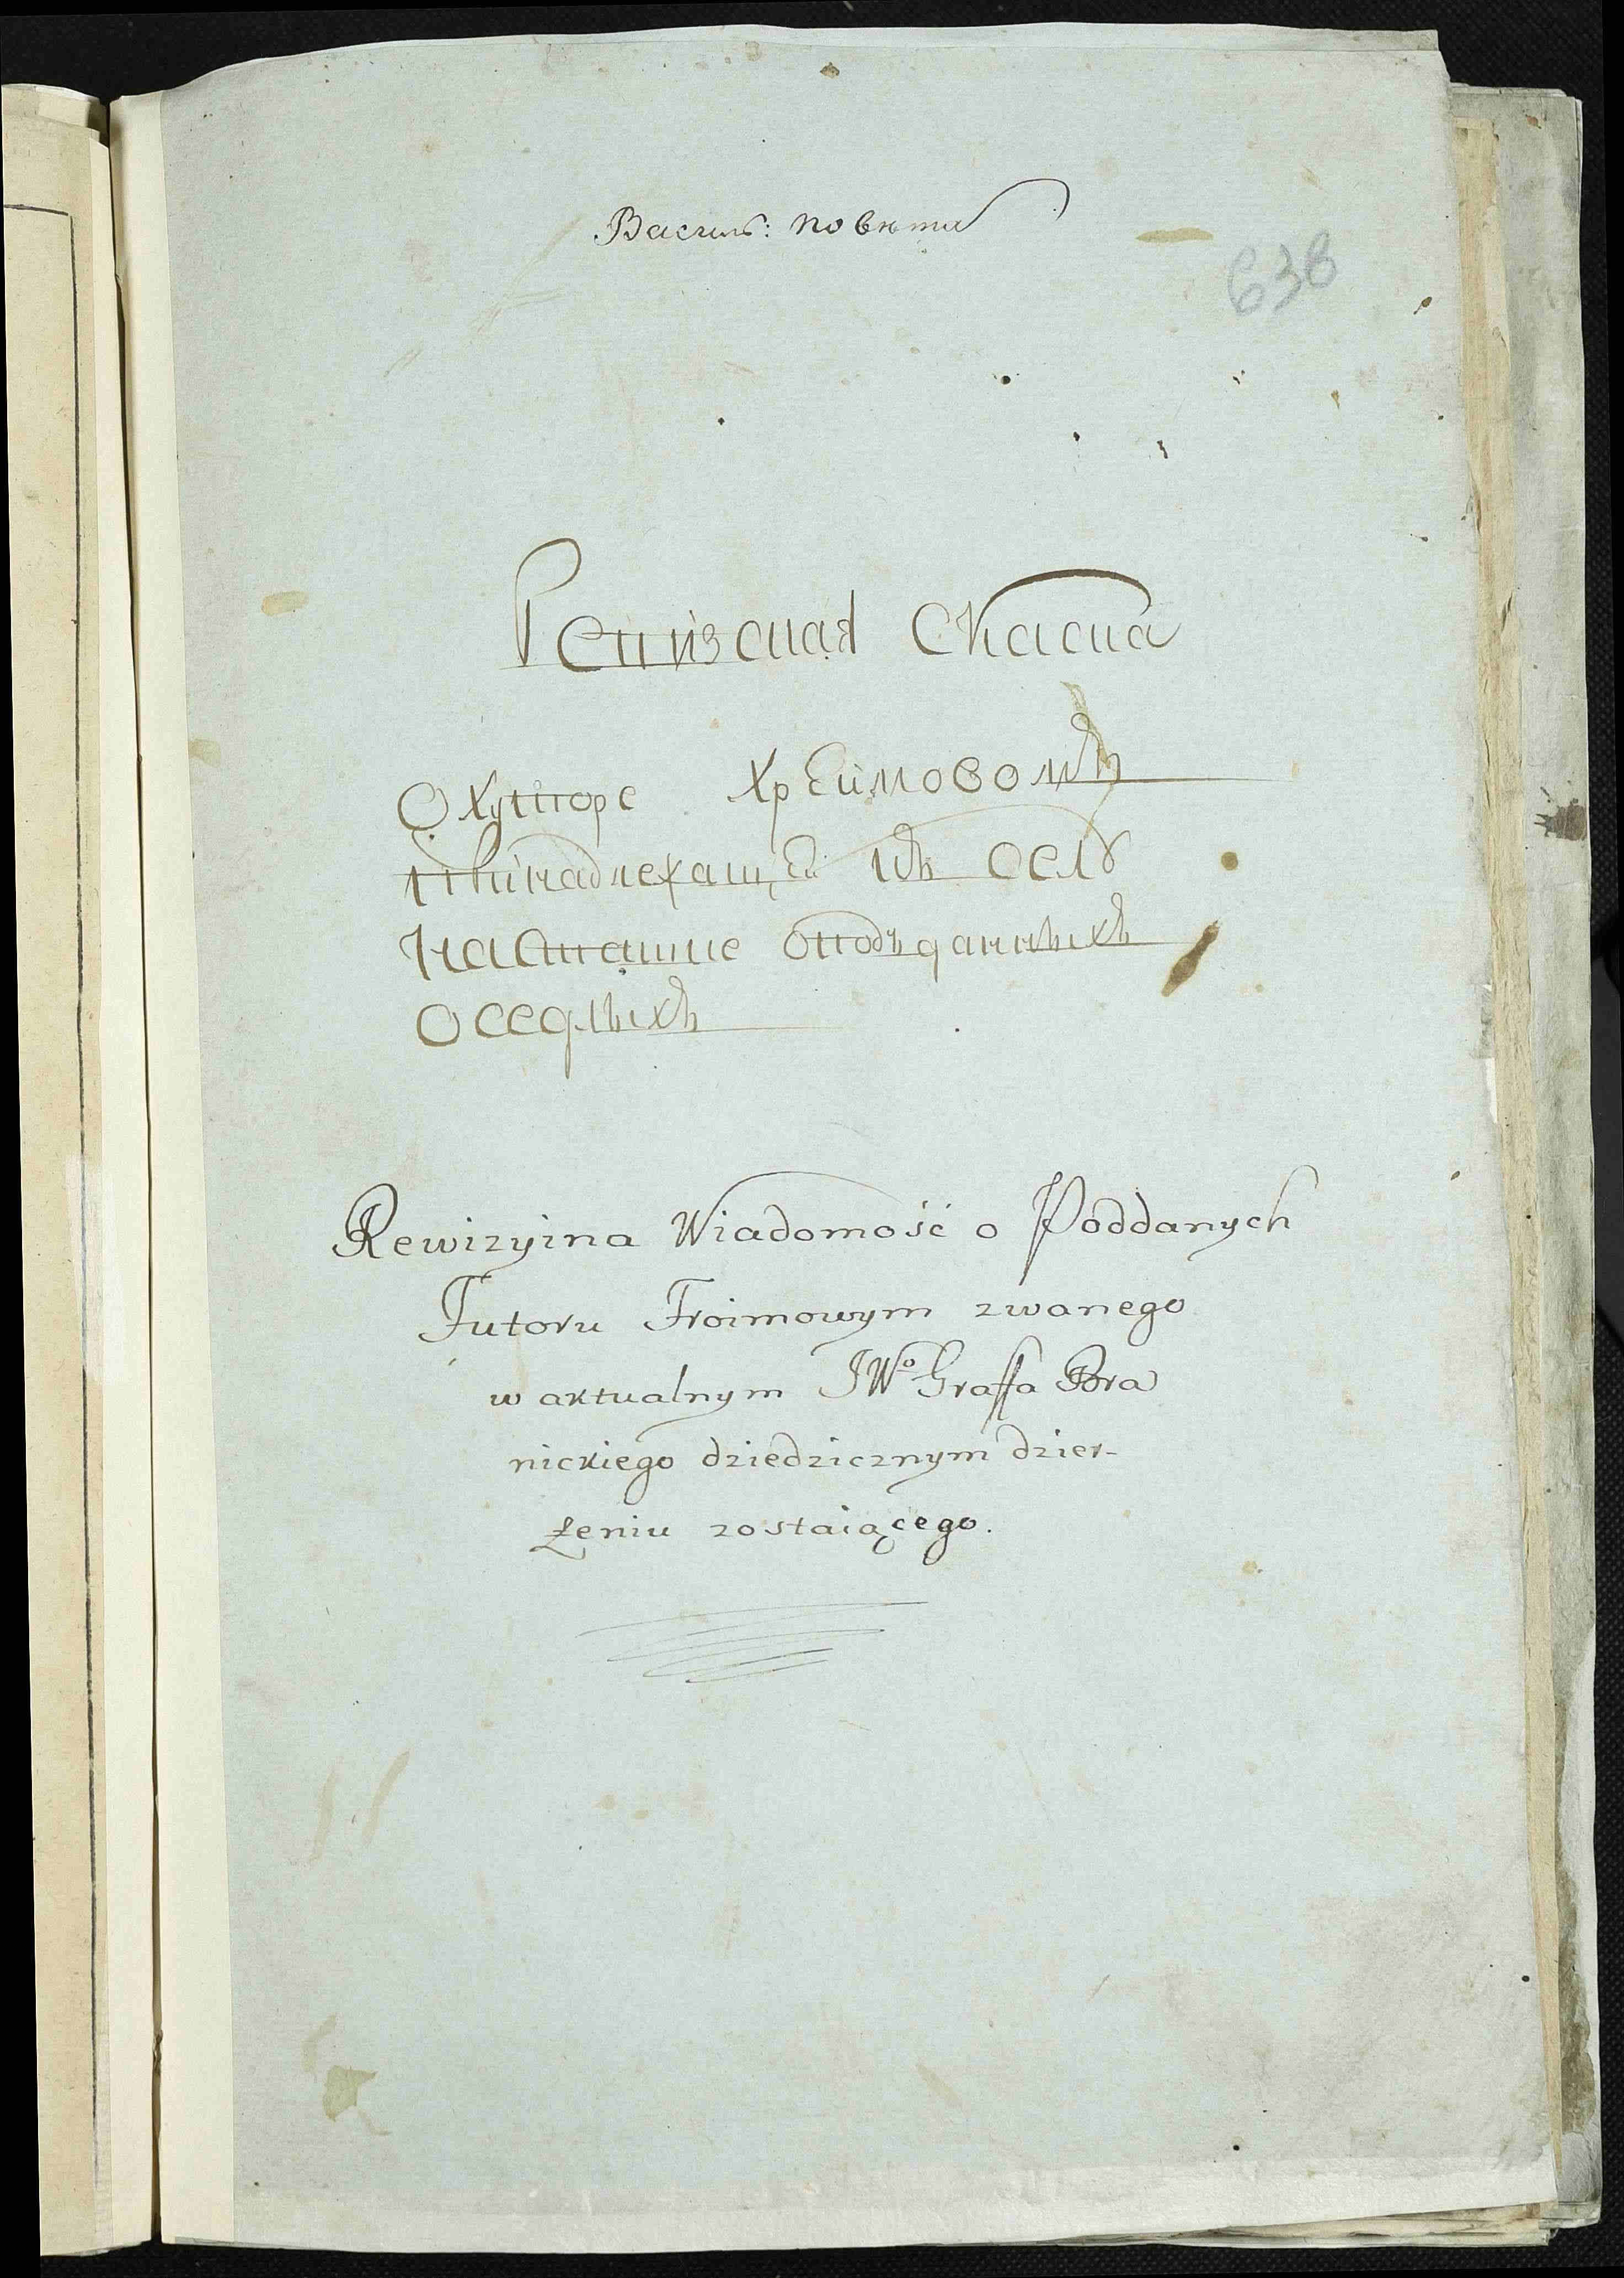 Васил: повѣта
638
Ревизская скаска
О хуторе Хреимовомъ
принадлежащей къ селѣ
Насташке оподъданныхъ
оседлыхъ
Rewizyina Wiadomość o Poddanych
Futoru Froimowym zwanego
w aktualnym JWo Graffa Bra
nickiego dziedzicznym dzier-
żeniu zostaiącego.